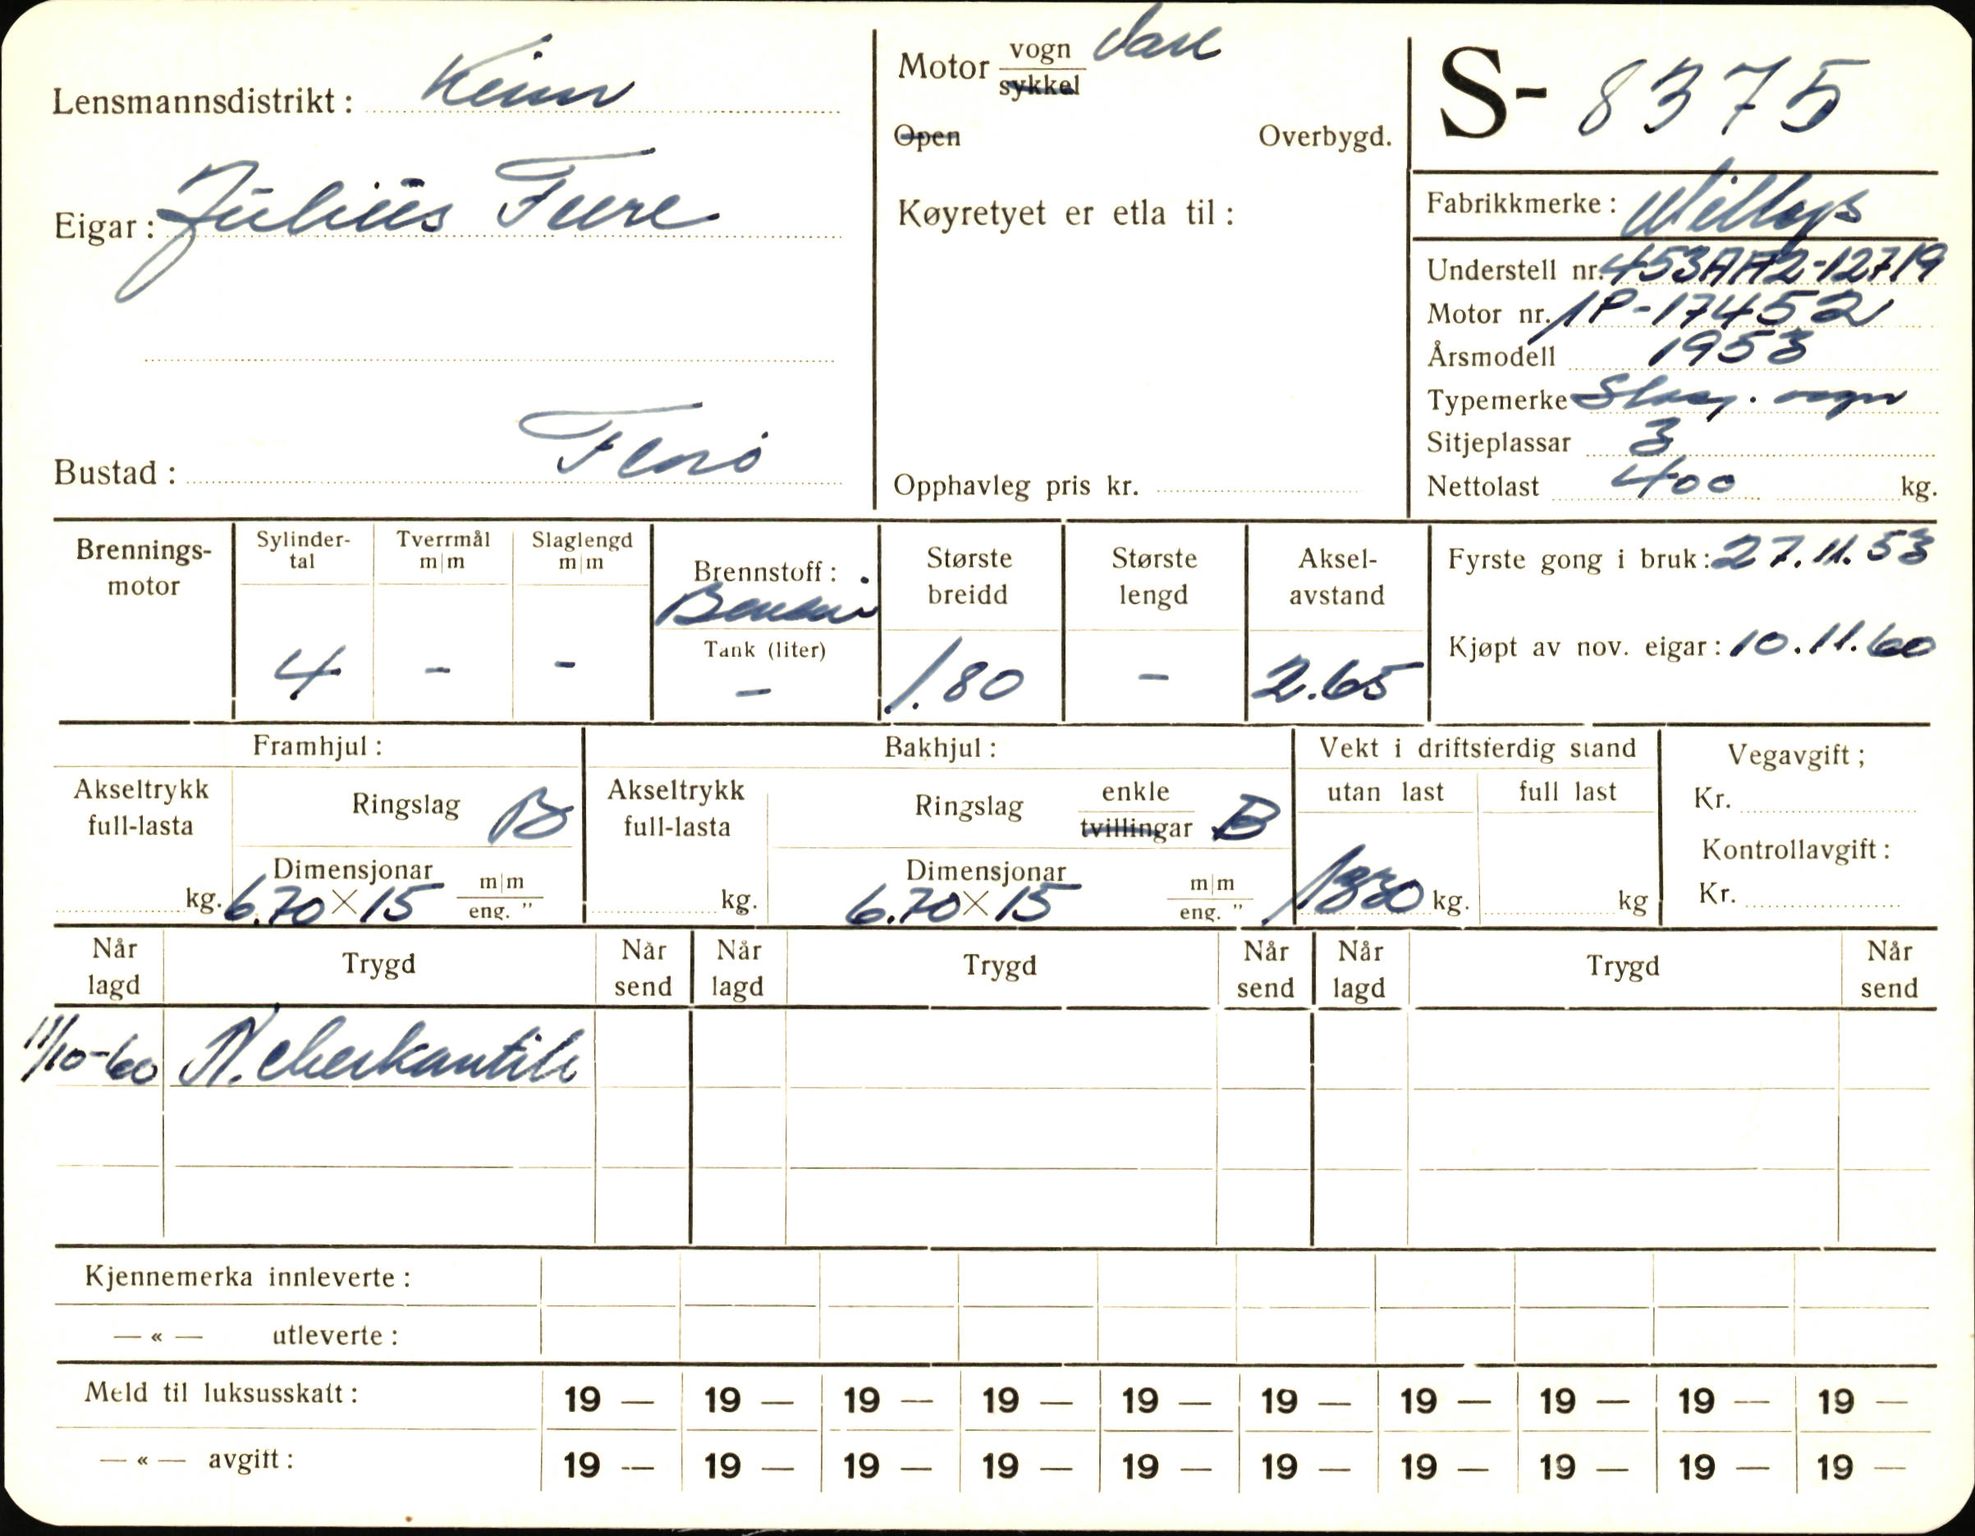 Lensmannsdistrikt: Kinn
Eigar: Julius Fure
Bustad: Florø
Motor vogn Vare
sykkel
Open Overbygd.
Køyretyet er etla til:
Opphavleg pris kr.
S- 8375
Fabrikkmerke: Willys
Understell nr. 453AA2-12719
Motor nr. 1P-17452
Årsmodell 1953
Typemerke Stasj. vogn
Sitjeplassar 3
Nettolast 400 kg.
Brennings-
motor
Sylinder-
tal
4
Tverrmål
m|m
-
Slaglengd
m|m
-
Brennstoff:
Bensin
Tank (liter)
-
Største
breidd
1.80
Største
lengd
-
Aksel-
avstand
2.65
Fyrste gong i bruk: 27.11.53
Kjøpt av nov. eigar: 10.11.60
Framhjul:
Akseltrykk
full-lasta
kg.
Ringslag B
Dimensjonar
6.70 × 15 m|m
eng. "
Bakhjul:
Akseltrykk
full-lasta
kg.
Ringslag enkle
tvillingar B
Dimensjonar
6.70 × 15 m|m
eng. "
Vekt i driftsferdig stand
utan last
1330 kg.
full last
kg
Vegavgift;
Kr.
Kontrollavgift:
Kr.
Når
lagd Trygd Når
send Når
lagd Trygd Når
send Når
lagd Trygd Når
send
11/10-60 N.
Kjennemerka innleverte:
— « — utleverte:
Meld til luksusskatt: 19 — 19 — 19 — 19 — 19 — 19 — 19 — 19 — 19 — 19 —
— « — avgift: 19 — 19 — 19 — 19 — 19 — 19 — 19 — 19 — 19 — 19 —